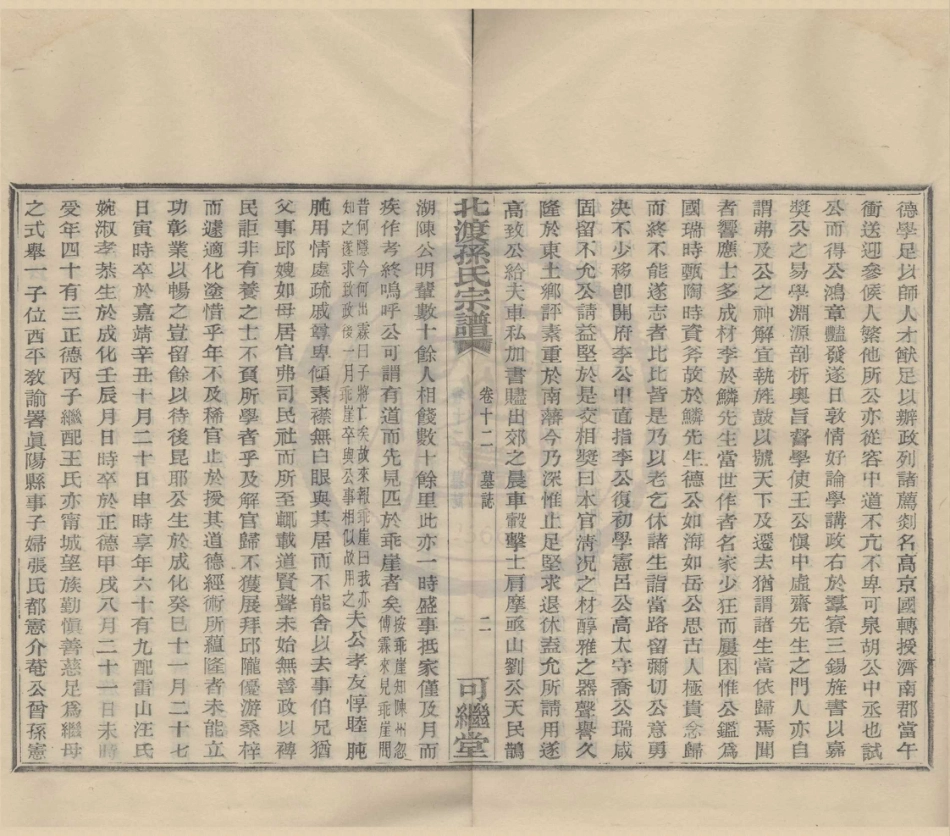 德學足以師人才猷足以辦政列諸薦剡名高京國轉授濟南郡當午
衝送迎參候人繁他所公亦從容中道不亢不卑可泉胡公中丞也試
公而得公鴻章豔發遂日敦情好論學講政右於羣寮三錫旌書以嘉
獎公之易學淵源剖析奧旨督學使王公慎中虛齋先生之門人亦自
謂弗及公之神解宜執旌鼓以號天下及遷去猶謂諸生當依歸焉聞
者響應士多成材李於鱗先生當世作者名家少狂而屢困惟公鑑為
國瑞時甄陶時資斧故於鱗先生德公如海如岳公思古人極貴念歸
而終不能遂志者比比皆是乃以老乞休諸生詣當路留彌切公意勇
決不少移卽開府李公中直指李公復初學憲呂公高太守喬公瑞咸
固留不允公請益堅於是交相獎曰本官清况之材醇雅之器聲譽久
隆於東土鄉評素重於南藩今乃深惟止足堅求退休蓋允所請用遂
高致公給夫車私加書贐出郊之晨車轂擊士肩摩亟山劉公天民鵲
北渡孫氏宗譜
卷十二 墓誌
二
可繼堂
湖陳公明輩數十餘人相餞數十餘里此亦一時盛事抵家僅及月而
疾作考終嗚呼公可謂有道而先見匹於乖崖者矣按乖崖知陳州忽傅霖來見乖崖問
昔何隱今何出霖曰子將亡矣故來報乖崖曰我亦知之遂求致政後一月乖崖卒與公事相似故用之夫公孝友惇睦肫
肫用情處疏戚尊卑傾素襟無白眼與其居而不能舍以去事伯兄猶
父事邱嫂如母居官弗司民社而所至輒載道賢聲未始無善政以裨
民詎非有養之士不負所學者乎及解官歸不獲展拜邱隴優游桑梓
而遽適化塗惜乎年不及稀官止於授其道德經術所蘊隆者未能立
功彰業以暢之豈留餘以待後昆耶公生於成化癸巳十一月二十七
日寅時卒於嘉靖辛丑十月二十日申時享年六十有九配雷山汪氏
婉淑孝恭生於成化壬辰月日時卒於正德甲戌八月二十一日未時
受年四十有三正德丙子繼配王氏亦甯城望族勤慎善慈足為繼母
之式舉一子位西平敎諭署眞陽縣事子婦張氏都憲介菴公晉孫憲